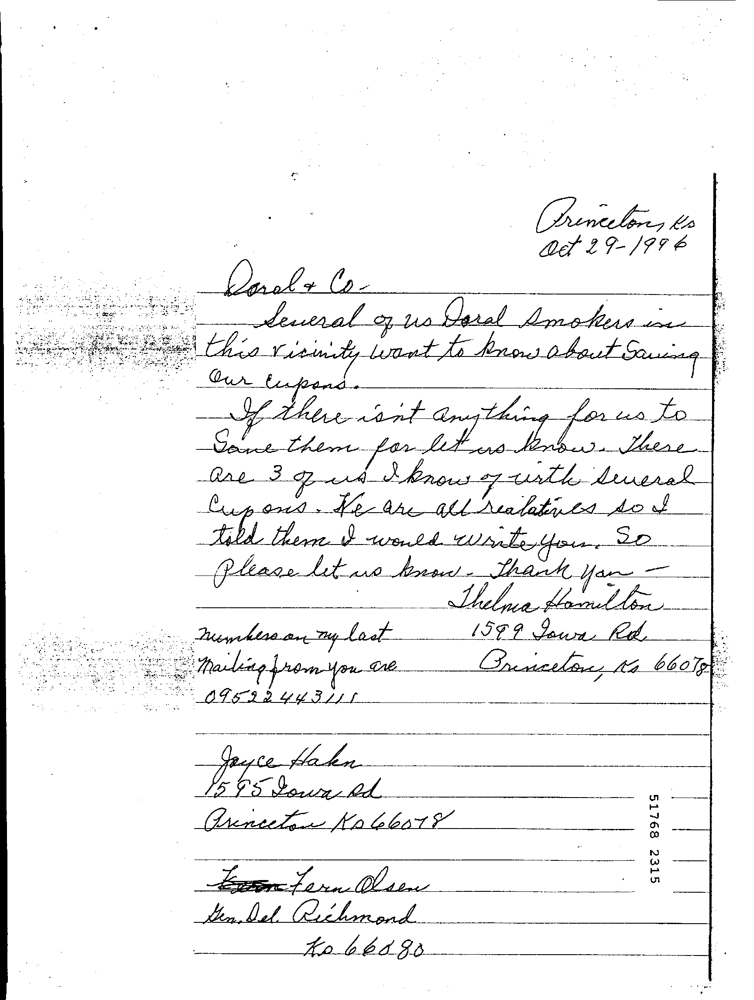 Princeton, Ks
Oct 29-1996
Doral & Co-
Several of us Doral smokers in
this vicinity want to know about Saving
Our Cupons.
If there isn't anything for us to
Save them for let us know. There
are 3 of us I know of with Several
Cupons. We are all realatives so I
told them I would write you. So
please let us know. Thank you -
Thelma Hamilton
1599 Iowa Rd.
Princeton, Ks 66078
numbers on my last
Mailing from you are
09522443111
Joyce Hahn
1595 Iowa Rd
Princeton Ks 66078
Fern Olsen
Gen. Del. Richmond
Ks 66080
51768 2315